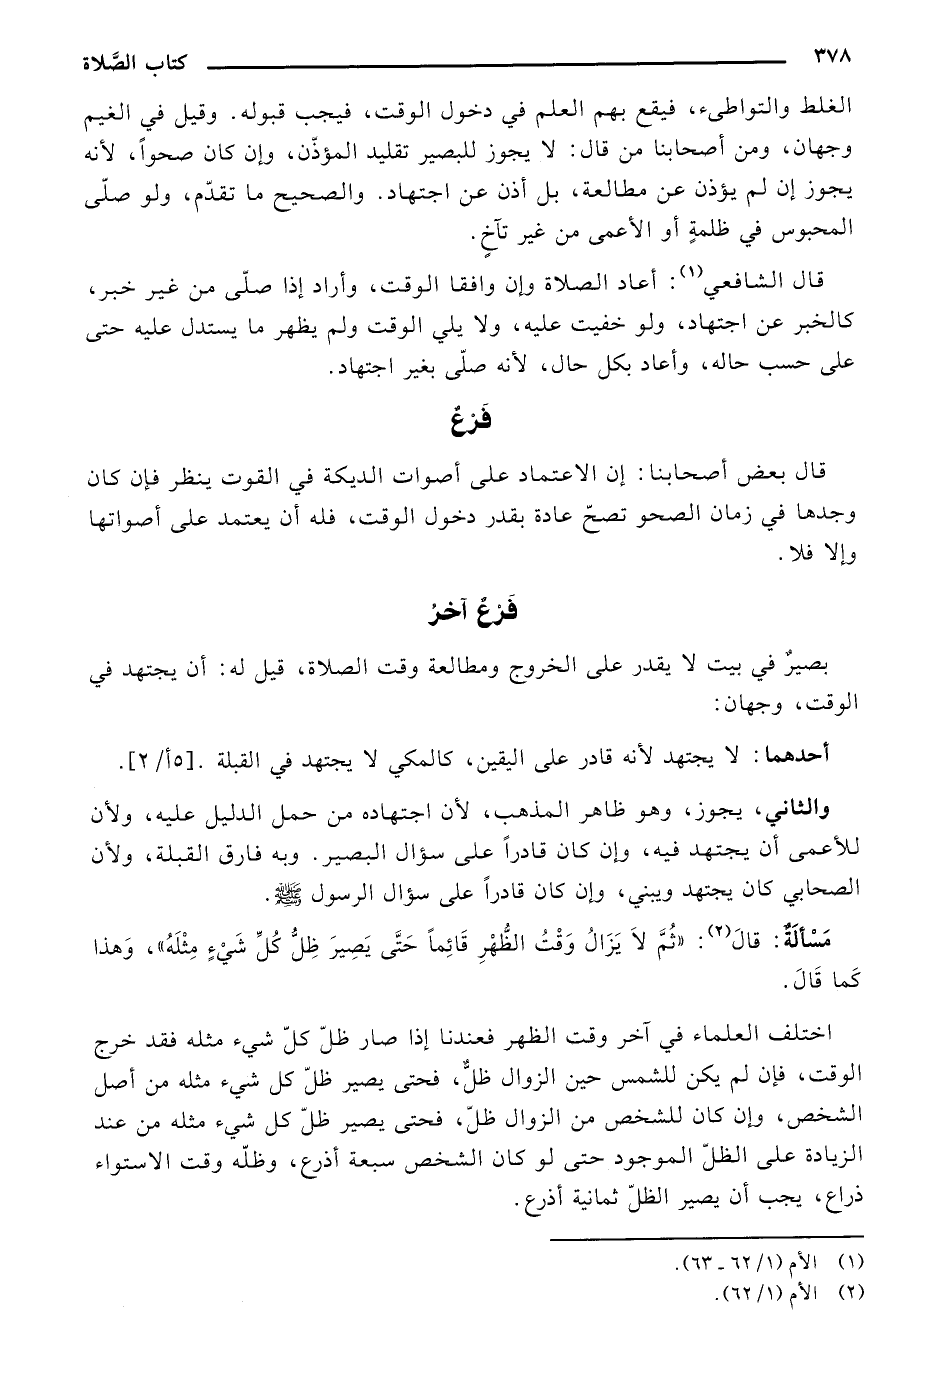 ٣٧٨ كتاب الصَّلاة
الغلط والتواطىء، فيقع بهم العلم في دخول الوقت، فيجب قبوله. وقيل في الغيم
وجهان، ومن أصحابنا من قال: لا يجوز للبصير تقليد المؤذّن، وإن كان صحواً، لأنه
يجوز إن لم يؤذن عن مطالعة، بل أذن عن اجتهاد. والصحيح ما تقدّم، ولو صلّى
المحبوس في ظلمةٍ أو الأعمى من غير تآخٍ.
قال الشافعي(١): أعاد الصلاة وإن وافقا الوقت، وأراد إذا صلّى من غير خبر،
كالخبر عن اجتهاد، ولو خفيت عليه، ولا يلي الوقت ولم يظهر ما يستدل عليه حتى
على حسب حاله، وأعاد بكل حال، لأنه صلّى بغير اجتهاد.
فَرْعٌ
قال بعض أصحابنا: إن الاعتماد على أصوات الديكة في القوت ينظر فإن كان
وجدها في زمان الصحو تصحّ عادة بقدر دخول الوقت، فله أن يعتمد على أصواتها
وإلا فلا.
فَرْعٌ آخرُ
بصيرٌ في بيت لا يقدر على الخروج ومطالعة وقت الصلاة، قيل له: أن يجتهد في
الوقت، وجهان:
أحدهما: لا يجتهد لأنه قادر على اليقين، كالمكي لا يجتهد في القبلة .[٥أ/ ٢].
والثاني، يجوز، وهو ظاهر المذهب، لأن اجتهاده من حمل الدليل عليه، ولأن
للأعمى أن يجتهد فيه، وإن كان قادراً على سؤال البصير. وبه فارق القبلة، ولأن
الصحابي كان يجتهد ويبني، وإن كان قادراً على سؤال الرسول ﷺ.
مَسْألَةٌ: قالَ(٢): «ثُمَّ لاَ يَزَالُ وَقْتُ الظُّهْرِ قَائِماً حَتَّى يَصِيرَ ظِلُّ كُلِّ شَيْءٍ مِثْلَهُ»، وَهذا
كَما قَالَ.
اختلف العلماء في آخر وقت الظهر فعندنا إذا صار ظلّ كلّ شيء مثله فقد خرج
الوقت، فإن لم يكن للشمس حين الزوال ظلٌّ، فحتى يصير ظلّ كل شيء مثله من أصل
الشخص، وإن كان للشخص من الزوال ظلّ، فحتى يصير ظلّ كل شيء مثله من عند
الزيادة على الظلّ الموجود حتى لو كان الشخص سبعة أذرع، وظلّه وقت الاستواء
ذراع، يجب أن يصير الظلّ ثمانية أذرع.
(١) الأم (١/ ٦٢ ـ ٦٣).
(٢) الأم (١/ ٦٢).